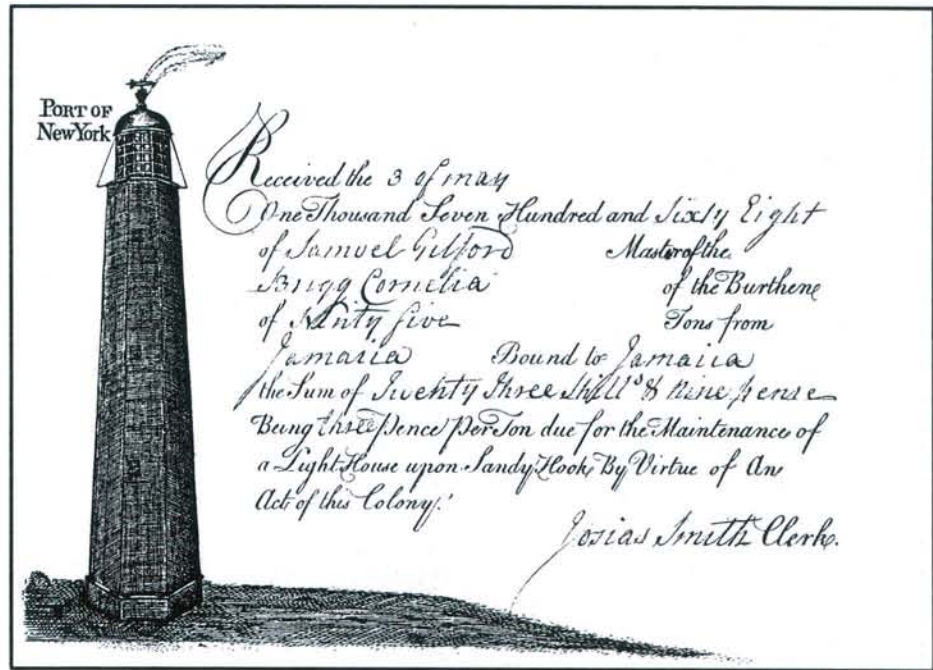 PORT OF
New York
Received the 3 of may
One Thousand Seven Hundred and Sixty Eight
of Samuel Gilford Master of the
Brigg Cornelia of the Burthene
of Ninty five Tons from
Jamaica Bound to Jamaica
the Sum of Twenty Three Shill^s & Nine pense
Being three Pence Per Ton due for the Maintenance of
a Light House upon Sandy Hook, By Virtue of An
Act of this Colony.
Josias Smith Clerk.